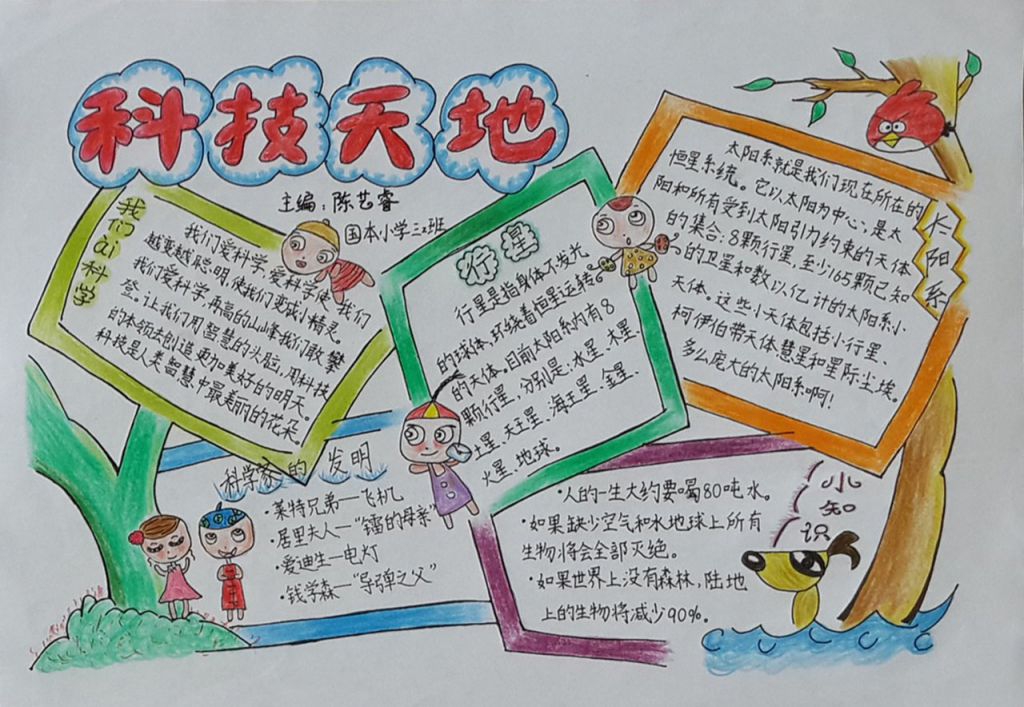 科技天地
主编:陈艺睿
国本小学三2班
我们ai科学
我们爱科学,爱科学使我们
越变越聪明,使我们变成小精灵。
我们爱科学,再高的山峰我们敢攀
登。让我们用智慧的火脑,用科技
的本领去创造更加美好的明天。
科技是人类智慧中最美丽的花朵
行星
行星是指身体不发光
的球体,环绕着恒星运转
的天体。目前太阳系约有8
颗行星,分别是:水星、木星、
土星、天王星、海王星、金星、
火星、地球。
太阳系
太阳系就是我们现在所在的
恒星系统。它以太阳为中心,是太
阳和所有受到太阳引力约束的天体
的集合:8颗行星,至少165颗已知
的卫星和数以亿计的太阳系小
天体。这些小天体包括小行星、
柯伊伯带天体慧星和星际尘埃。
多么庞大的太阳系啊!
科学家的发明
·莱特兄弟—飞机
·居里夫人—“镭的母亲”
·爱迪生—电灯
·钱学森—“导弹之父”
小知识
·人的一生大约要喝80吨水。
·如果缺少空气和水地球上所有
生物将会全部灭绝。
·如果世界上没有森林,陆地
上的生物将减少90%。